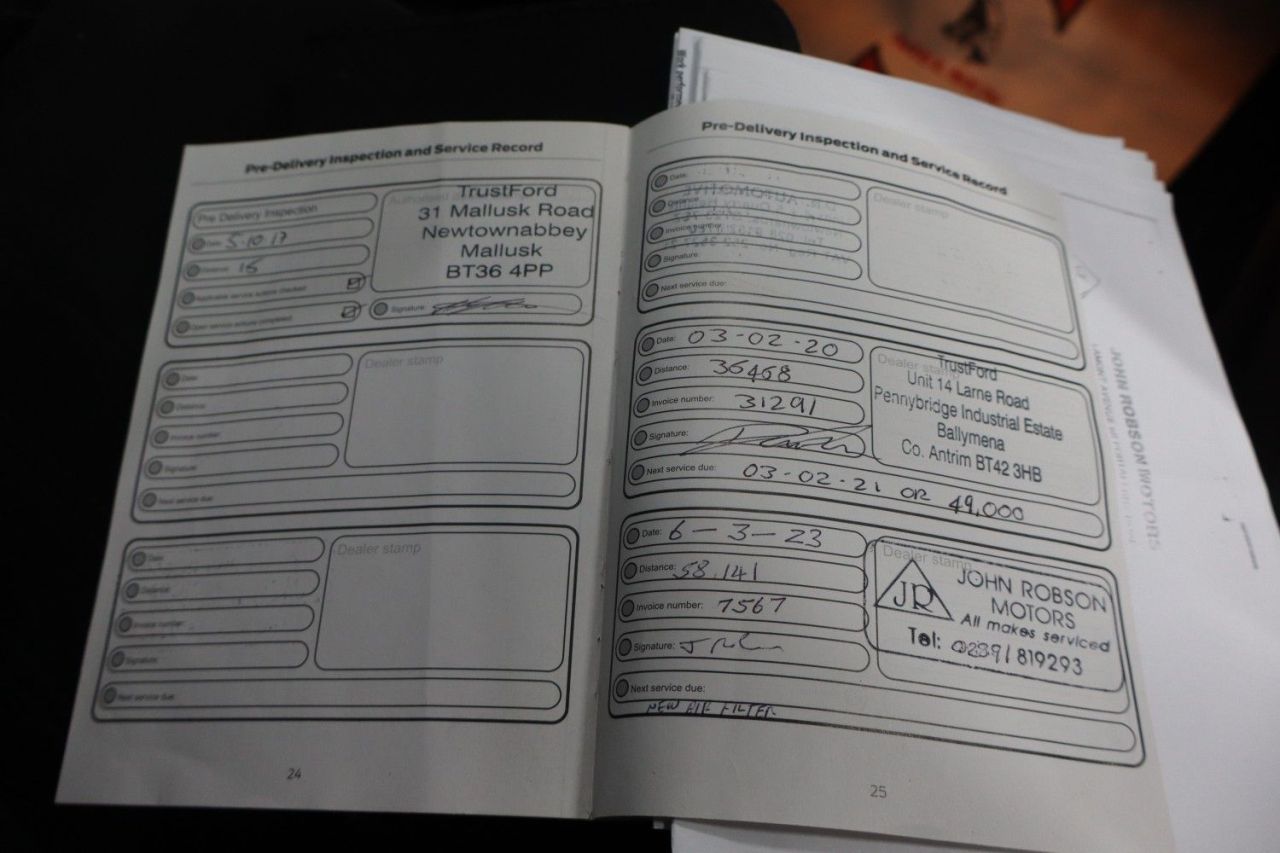 Pre-Delivery Inspection and Service Record
Pre Delivery Inspection
Date: 5.10.17
Distance: 15
Applicable service actions checked
Open service actions completed
TrustFord
31 Mallusk Road
Newtownabbey
Mallusk
BT36 4PP
Signature:
Date:
Distance:
Invoice number:
Signature:
Next service due:
Dealer stamp
Date:
Distance:
Invoice number:
Signature:
Next service due:
Dealer stamp
24
Pre-Delivery Inspection and Service Record
Date:
Distance:
Invoice number:
Signature:
Next service due:
Dealer stamp
Date: 03-02-20
Distance: 36468
Invoice number: 31291
Signature:
Next service due: 03-02-21 OR 49,000
Dealer stamp
TrustFord
Unit 14 Larne Road
Pennybridge Industrial Estate
Ballymena
Co. Antrim BT42 3HB
Date: 6-3-23
Distance: 58.141
Invoice number: 7567
Signature:
Next service due:
NEW AIR FILTER
Dealer stamp
JR
JOHN ROBSON
MOTORS
All makes serviced
Tel: 02891 819293
25
JOHN ROBSON MOTORS